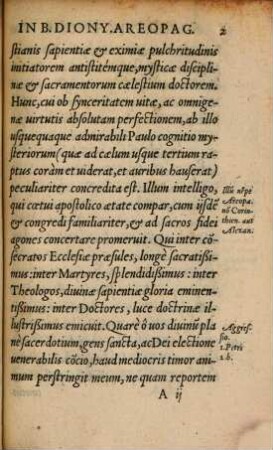 IN B. DIONY. AREOPAG. 2
stianis sapientiæ & eximiæ pulchritudinis
initiatorem antistitémque, mysticæ disciplinæ
& sacramentorum cælestium doctorem.
Hunc, cui ob synceritatem uitæ, ac omnigenæ
uirtutis absolutam perfectionem, ab illo
usquequaque admirabili Paulo cognitio mysteriorum
(quæ ad cælum usque tertium raptus
coràm et uiderat, et auribus hauserat)
peculiariter concredita est. Illum intelligo,
qui cœtui apostolico ætate compar, cum ijsdē
& congredi familiariter, & ad sacros fidei
agones concertare promeruit. Qui inter cōsecratos
Ecclesiæ præsules, longè sacratissimus:
inter Martyres, splendidissimus: inter
Theologos, diuinæ sapientiæ gloria eminentissimus:
inter Doctores, luce doctrinæ illustrissimus
emicuit. Quarè ô uos diuinū planè
sacerdotium, gens sancta, ac Dei electione
uenerabilis cōcio, haud mediocris timor animum
perstringit meum, ne quam reportem
A ij
Aggressio.
1. Petri
2. b.